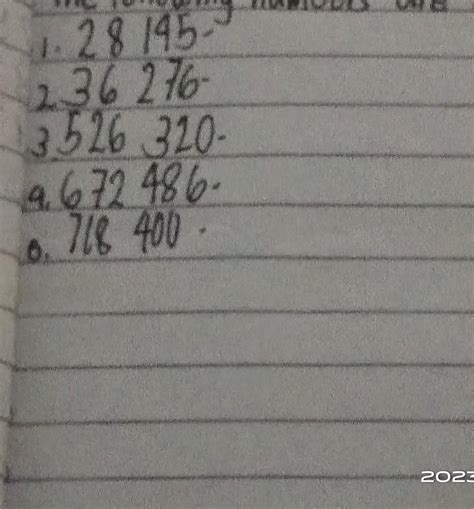 The following numbers are
1. 28 195-
2. 36 276-
3. 526 320-
4. 672 486-
5. 718 400.
2023